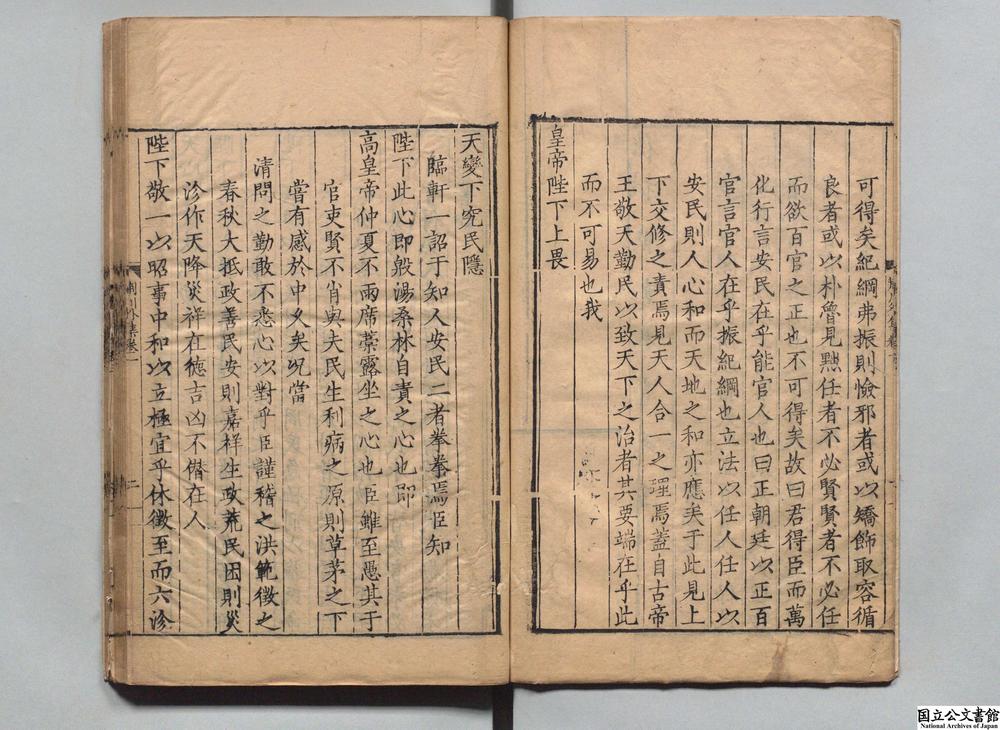 可得矣紀綱弗振則憸邪者或以矯飾取容循
良者或以朴魯見黜任者不必賢賢者不必任
而欲百官之正也不可得矣故曰君得臣而萬
化行言安民在乎能官人也曰正朝廷以正百
官言官人在乎振紀綱也立法以任人任人以
安民則人心和而天地之和亦應矣于此見上
下交修之責焉見天人合一之理焉蓋自古帝
王敬天勤民以致天下之治者其要端在乎此
而不可易也我
皇帝陛下上畏
天變下究民隱
臨軒一詔于知人安民二者拳拳焉臣知
陛下此心即殷湯桑林自責之心也即
高皇帝仲夏不雨席藁露坐之心也臣雖至愚其于
官吏賢不肖與夫民生利病之原則草茅之下
嘗有感於中久矣況當
清問之勤敢不悉心以對乎臣謹稽之洪範徵之
春秋大抵政善民安則嘉祥生政荒民困則災
沴作天降災祥在德吉凶不僭在人
陛下敬一以昭事中和以立極宜乎休徵至而六沴
荊川外集卷一
二
国立公文書館
National Archives of Japan